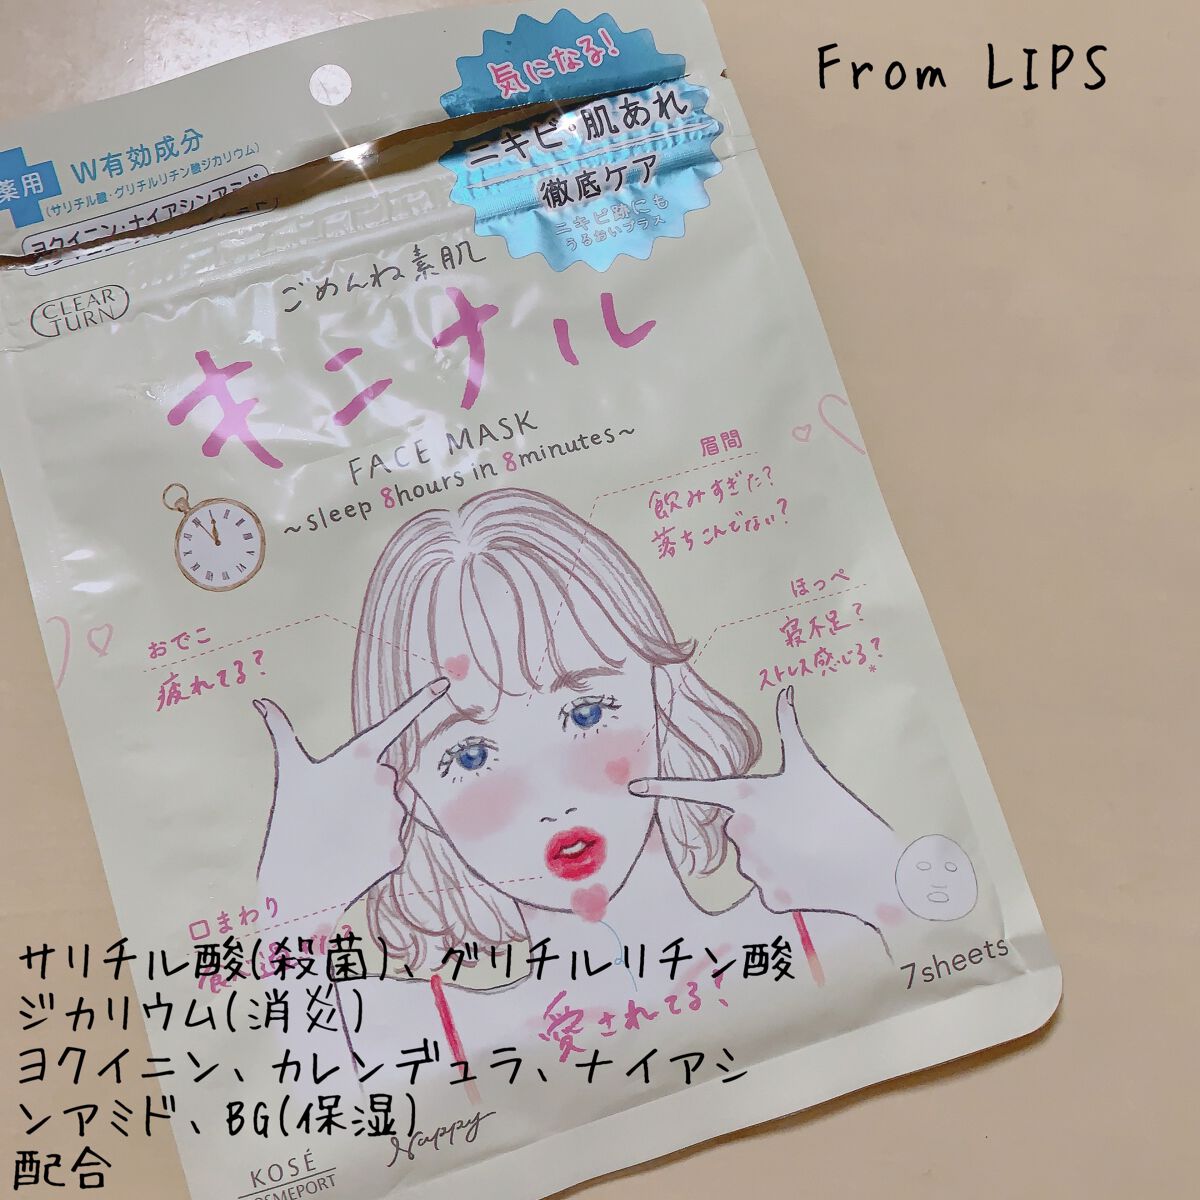 From LIPS
気になる!
ニキビ・肌あれ
徹底ケア
ニキビ跡にも
うるおいプラス
薬用
W有効成分
(サリチル酸・グリチルリチン酸ジカリウム)
ヨクイニン・ナイアシンアミド
CLEAR
TURN
ごめんね素肌
キニナル
FACE MASK
~sleep 8hours in 8minutes~
眉間
飲みすぎた?
落ちこんでない?
ほっぺ
寝不足?
ストレス感じる?*
おでこ
疲れてる?
口まわり
愛されてる?
7sheets
サリチル酸(殺菌)、グリチルリチン酸
ジカリウム(消炎)
ヨクイニン、カレンデュラ、ナイアシ
ンアミド、BG(保湿)
配合
Nappy
KOSÉ